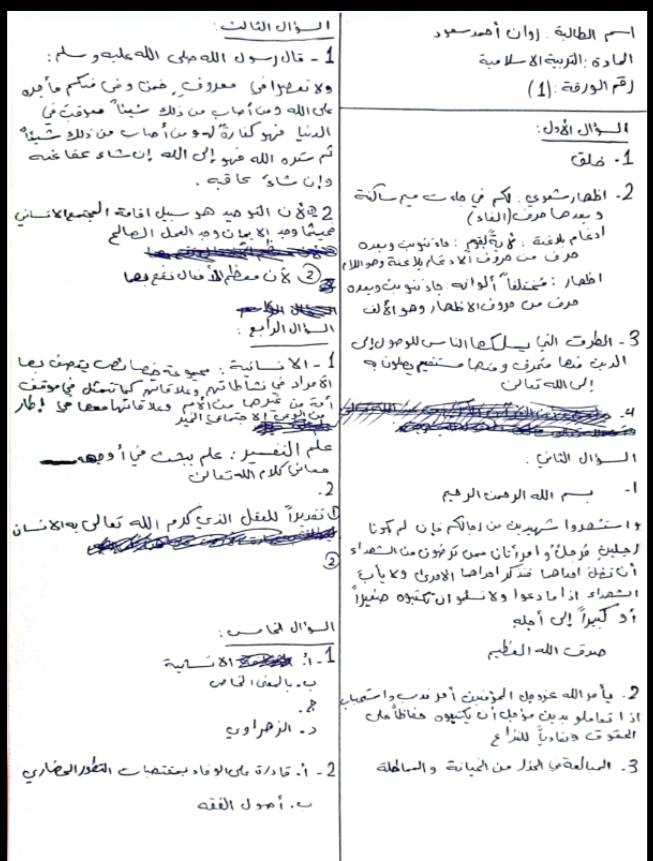 اسم الطالبة : روان أحمد سعود
المادة : التربية الاسلامية
رقم الورقة : (1)
السؤال الأول :
1. خلق
2. اظهار شفوي : لكم في جاءت ميم ساكنة
وبعدها حرف (الفاء)
ادغام بلاغنة : لآية لقوم : جاء تنوين وبعده
حرف من حروف الادغام بلاغنة وهو اللام
اظهار : مختلفاً ألوانه جاء تنوين وبعده
حرف من حروف الاظهار وهو الألف
3- الطرق التي يسلكها الناس للوصول إلى
الدين منها منحرف ومنها مستقيم يصلون به
إلى الله تعالى
4.
السؤال الثاني :
1- بسم الله الرحمن الرحيم
واستشهدوا شهيدين من رجالكم فإن لم يكونا
رجلين فرجل وامرأتان ممن ترضون من الشهداء
أن تضل احداهما فتذكر احداهما الاخرى ولا يأب
الشهداء اذا ما دعوا ولا تسئموا ان تكتبوه صغيراً
أو كبيراً إلى أجله
صدق الله العظيم
2. يأمر الله عزوجل المؤمنين أمر ندب واستحباب
اذا تعاملو بدين مؤجل أن يكتبوه حفاظاً على
الحقوق وتفادياً للنزاع
3. المبالغة في الحذر من الخيانة والمماطلة
السؤال الثالث :
1- قال رسول الله صلى الله عليه وسلم :
ولا تعصوا في معروف ، فمن وفى منكم فأجره
على الله ومن أصاب من ذلك شيئاً فعوقب في
الدنيا فهو كفارة له ومن أصاب من ذلك شيئاً
ثم ستره الله فهو إلى الله إن شاء عفا عنه
وإن شاء عاقبه .
2 ① لأن التوحيد هو سبيل اقامة المجتمع الانساني
فحيثما وجد الايمان وجد العمل الصالح
② لأن معظم الأفعال تقع بها
السؤال الرابع :
1- الانسانية : مجموعة خصائص يتصف بها
الأفراد في نشاطاتهم وعلاقاتهم كما تتمثل في موقف
أمة من غيرها من الأمم وعلاقاتها معها في إطار
من الوعي الاجتماعي الخير
علم التفسير : علم يبحث في أوجه
معاني كلام الله تعالى
2.
① تقديراً للعقل الذي كرم الله تعالى به الانسان
②
السؤال الخامس :
1- أ. الانسانية
ب. بالمعنى الخاص
ج.
د. الزهراوي
2- أ. قادرة على الوفاء بمقتضيات التطور الحضاري
ب. أصول الفقه